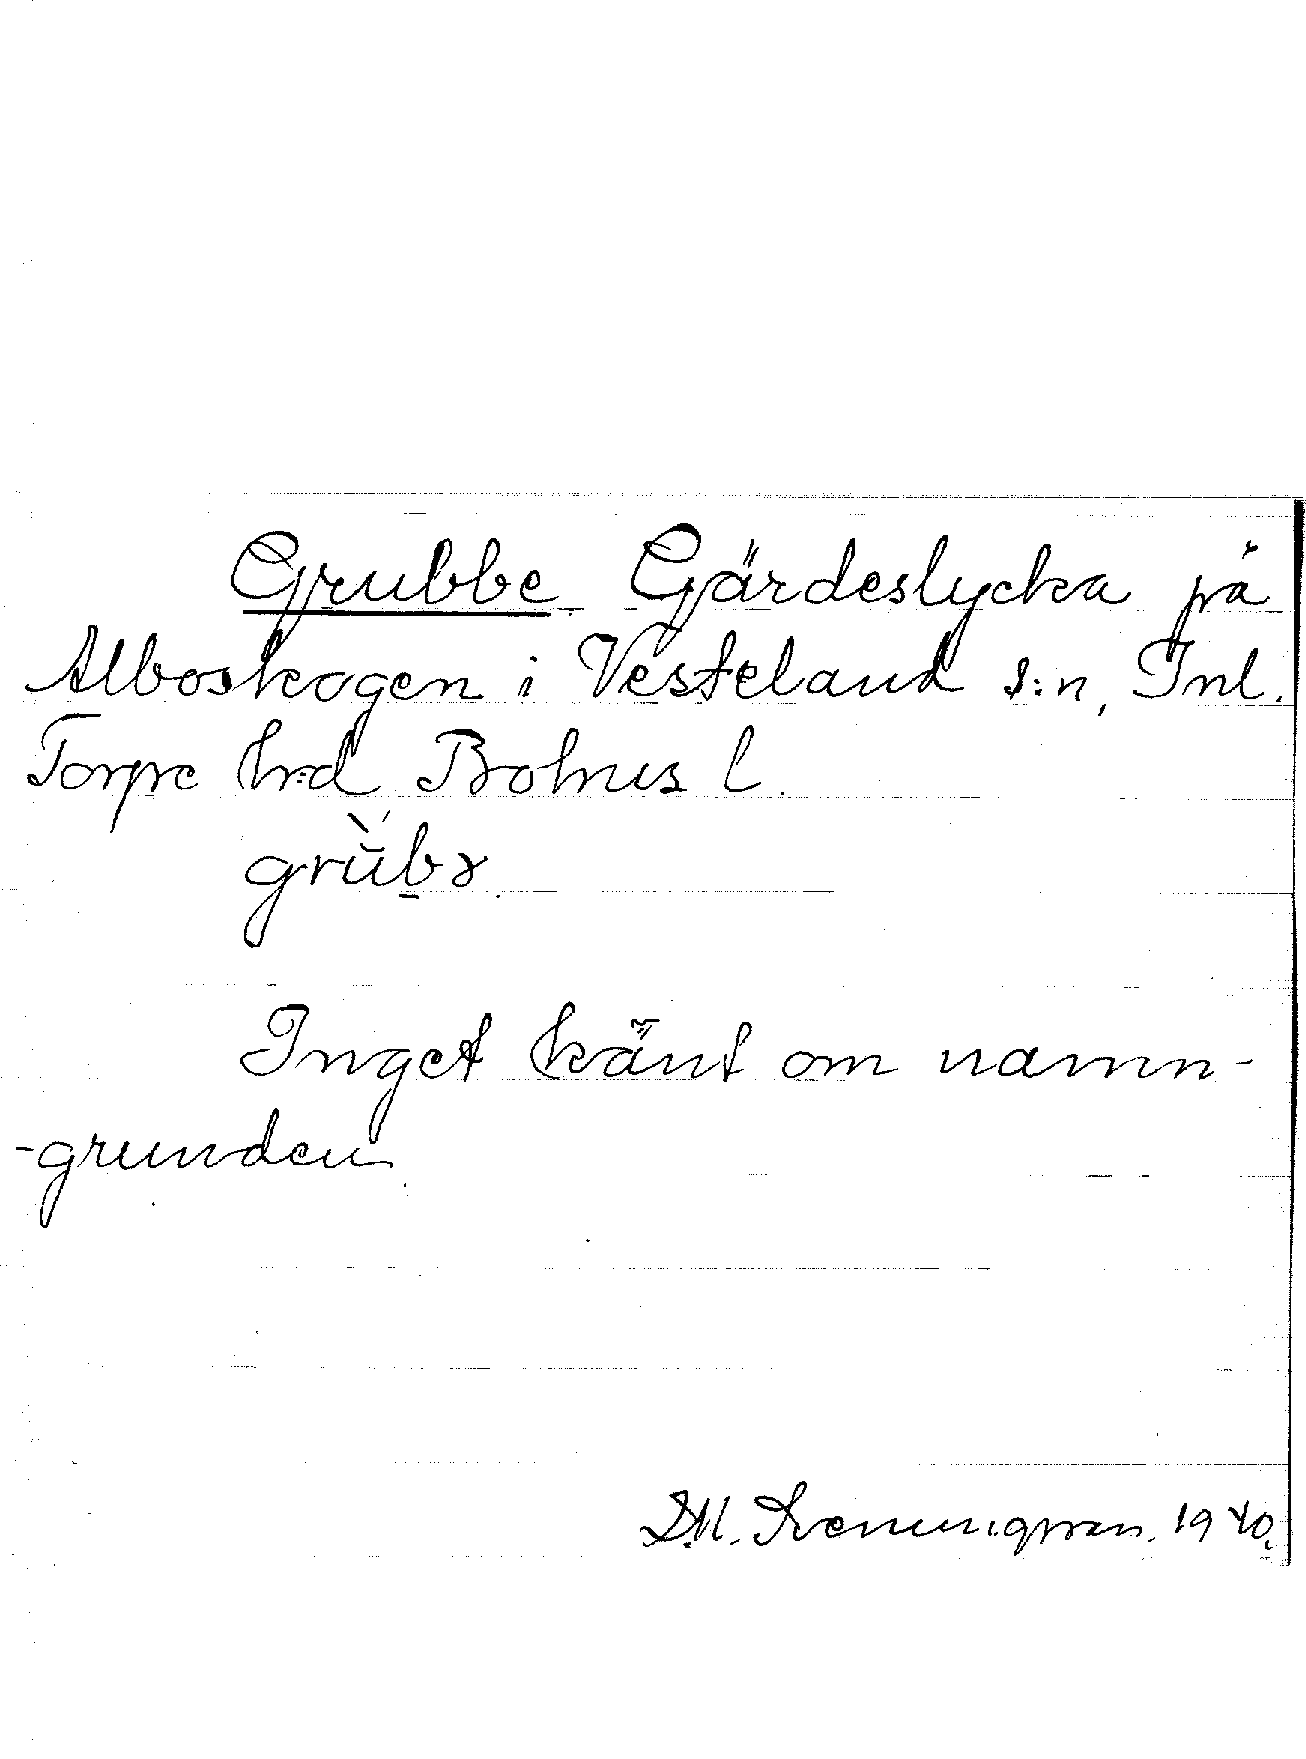 Grubbe Gärdeslycka på
Alboskogen i Vesteland s:n, Inl.
Torpe hrd Bohus l.
grŭbɤ
Inget känt om namn-
-grunden
1940.